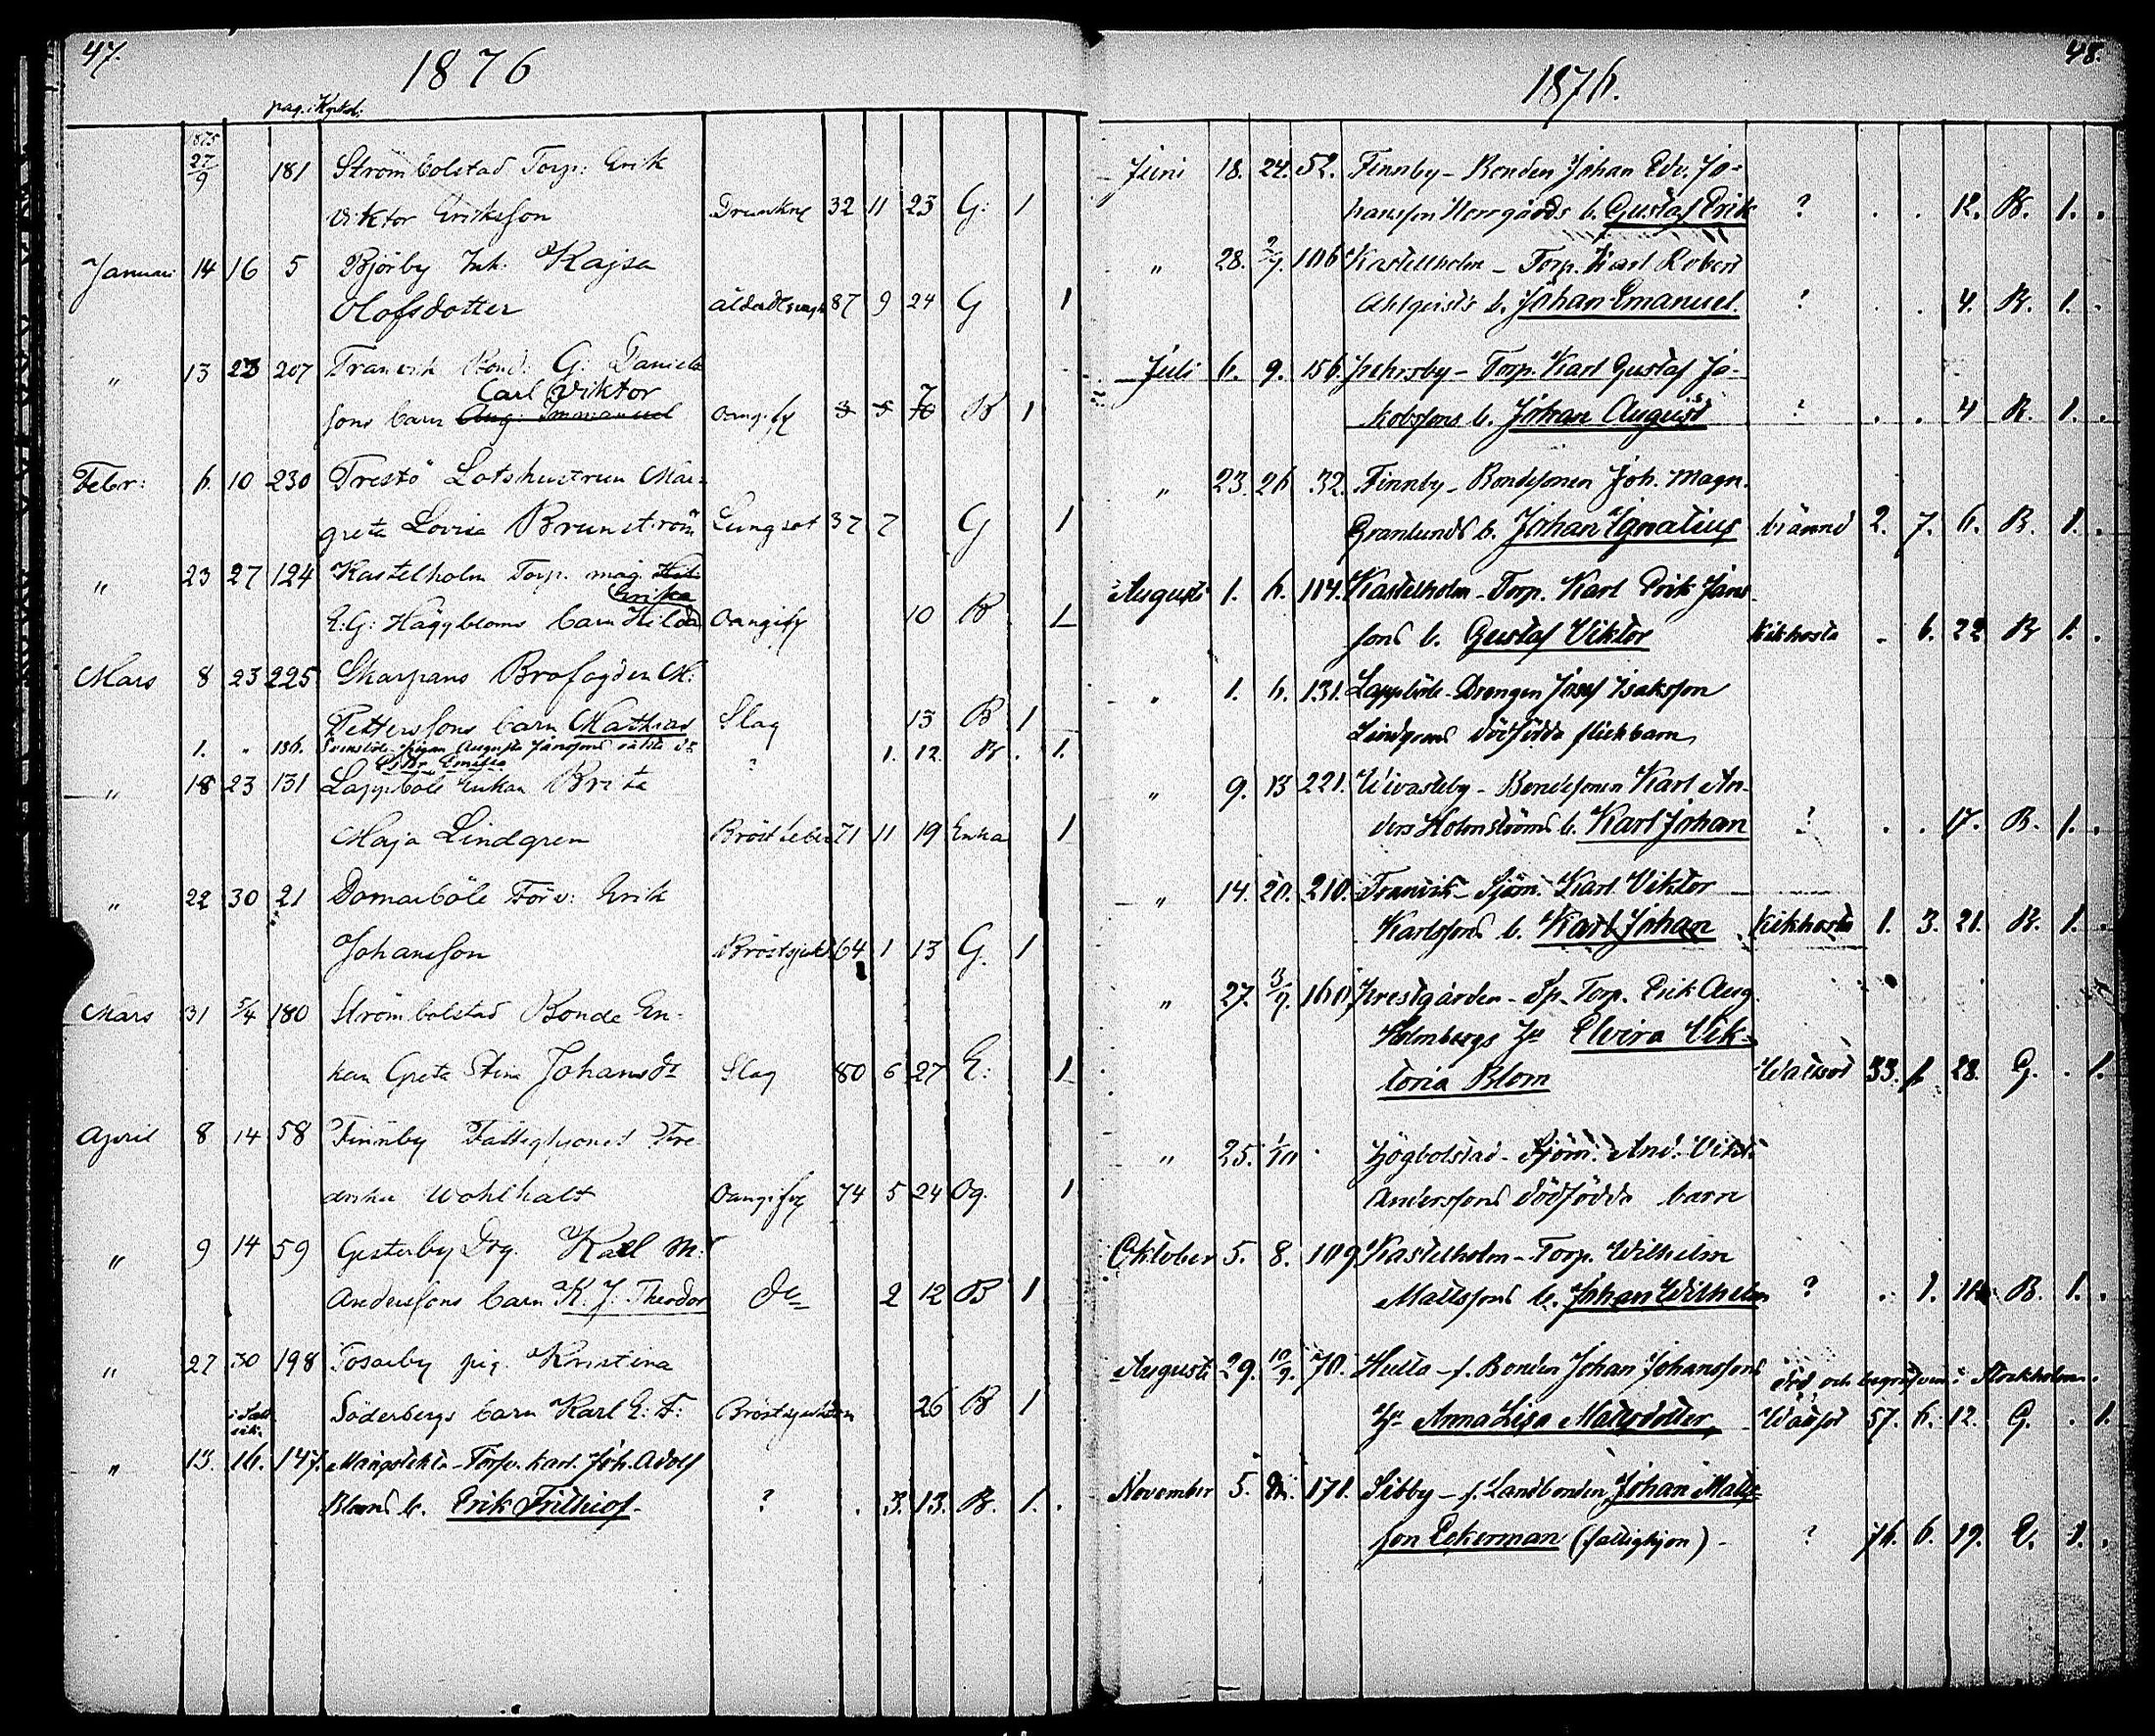 47.
1876
pag. i Kyrkob:
1875
27/9 181 Strömbolstad Torp: Erik
Viktor Eriksson Drunkng 32 11 23 G: 1
Januari 14 16 5 Björby Inh: Kajsa
Olofsdotter 87 9 24 G 1
" 13 23 207 Tranvik Bond: G: Daniels
Carl Viktor 7
sons barn Aug: Immanuel oangify 3 5 10 B 1
Febr: 6. 10 230 Trestö Lotshustrun Mar-
greta Lovisa Brunström Lungsot 37 7 G 1
" 23 27 124 Kastelholm Torp. mag.
Erika
E: G: Häggbloms barn Hilda Oangify 10 B 1
Mars 8 23 225 Skarpans Brofogden M:
Petterssons barn Mathias Slag 13 B 1
1. " 136. pigan Augusta Janssons oäkta
Emilia ? 1. 12. B. . 1.
" 18 23 131 Lappböle Enkan Brita
Maja Lindgren 71 11 19 Enka 1
" 22 30 21 Domarböle Förv: Erik
Johansson Bröstsjukd 64 1 13 G. 1
Mars 31 5/4 180 Strömbolstad Bonde En-
kan Greta Stina Johansdr Slag 80 6 27 E: 1
April 8 14 58 Finnby Fattighjonet Fre-
drika Wohlhalt Oangify 74 5 24 Og. 1
" 9 14 59 Gesterby Drg. Karl M:
Anderssons barn K. J. Theodor do 2 12 B 1
" 27 30 198 Tosarby pig. Kristina
Söderbergs barn Karl E: F: Bröstsjukdom 26 B 1
" 13. 16. 147. Mångstekta - Torpv. karl. Joh. Adolf
Bloms b. Erik Frithiof. ? . 3. 13. B. 1. .
48.
1876.
Juni 18. 24. 52. Finnby - Bonden Johan Edv. Jo-
hansson Norrgårds b. Gustaf Erik ? . . 12. B. 1. .
" 28. 2/7. 106 Kastellholm - Torp. Karl Robert
Ahlqvists b. Johan Emanuel. ? . . 4. B. 1. .
Juli 6. 9. 156. Pehrsby - Torp. Karl Gustaf Ja-
kobssons b. Johan August ? . . 4 B. 1. .
" 23. 26 32. Finnby - Bondesonen Joh. Magn.
Granlunds b. Johan Ignatius bränd 2. 7. 6. B. 1. .
Augusti 1. 6. 114. Kastelholm - Torp. Karl Erik Jans-
sons b. Gustaf Viktor Kikhosta . 6. 22 B 1. .
" 1. 6. 131. Lappböle - Drengen Josef Isaksson
Lindgrens dödfödda flickbarn
" 9. 13 221. Wivasteby - Bondesonen Karl An-
ders Holmströms b. Karl Johan ? . . 17. B. 1. .
" 14. 20. 210. Tranvik - Sjöm. Karl Viktor
Karlssons b. Karl Johan Kikhosta 1. 3. 21. B. 1. .
" 27. 3/9. 160. Prestgården - Sp. Torp. Erik Aug.
Holmbergs Hu Elvira Vik-
toria Blom Wattsot 33. 1. 28. G. . 1.
" 25. 1/10 . Högbolstad - Sjöm. And. Vikt.
Anderssons dödfödda barn
Oktober 5. 8. 109 Kastelholm - Torp. Wilhelm
Mattssons b. Johan Wilhelm ? . 1. B. 1. .
Augusti 29. 10/9. 70. Hulta - f. Bonden Johan Johanssons
Död och begrafven i Stockholm.
Hu Anna Lisa Mattsdotter, Wattsot 57. 6. 12. G. . 1.
November 5. 171. Sibby - f. Landbonden Johan Matts-
son Eckerman (fattighjon) - ? 76. 6. 19. E. 1. .